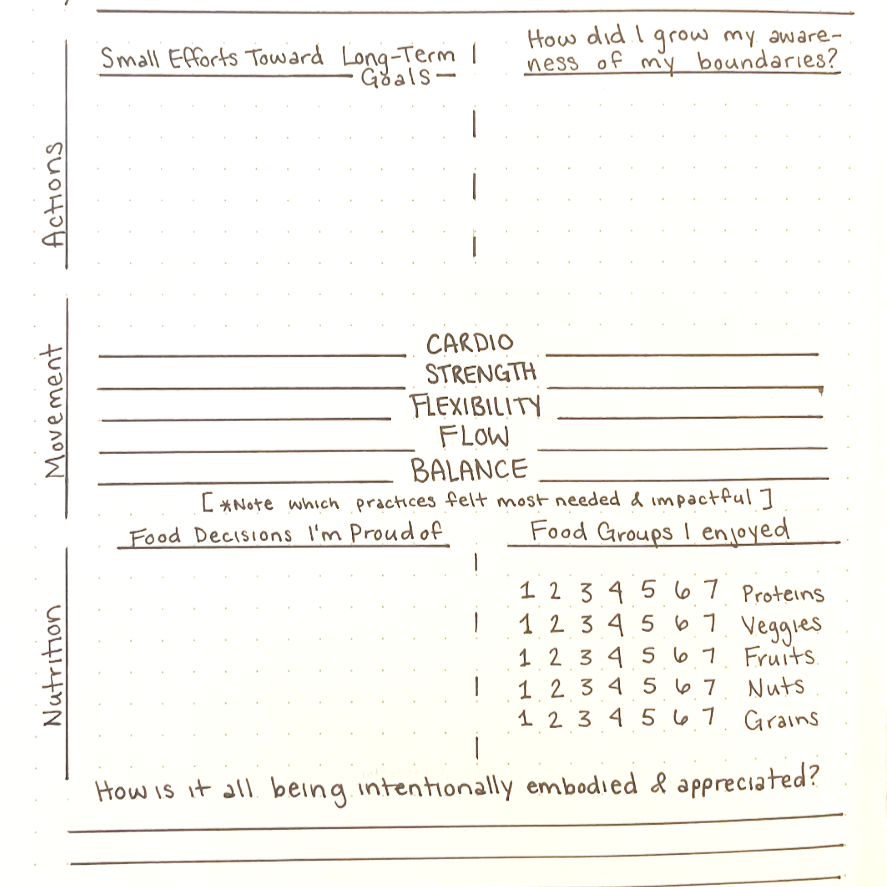 Small Efforts Toward Long-Term
Goals
How did I grow my aware-
ness of my boundaries?
Actions
Movement
CARDIO
STRENGTH
FLEXIBILITY
FLOW
BALANCE
[*Note which practices felt most needed & impactful]
Nutrition
Food Decisions I'm Proud of
Food Groups I enjoyed
1 2 3 4 5 6 7 Proteins
1 2 3 4 5 6 7 Veggies
1 2 3 4 5 6 7 Fruits
1 2 3 4 5 6 7 Nuts
1 2 3 4 5 6 7 Grains
How is it all being intentionally embodied & appreciated?